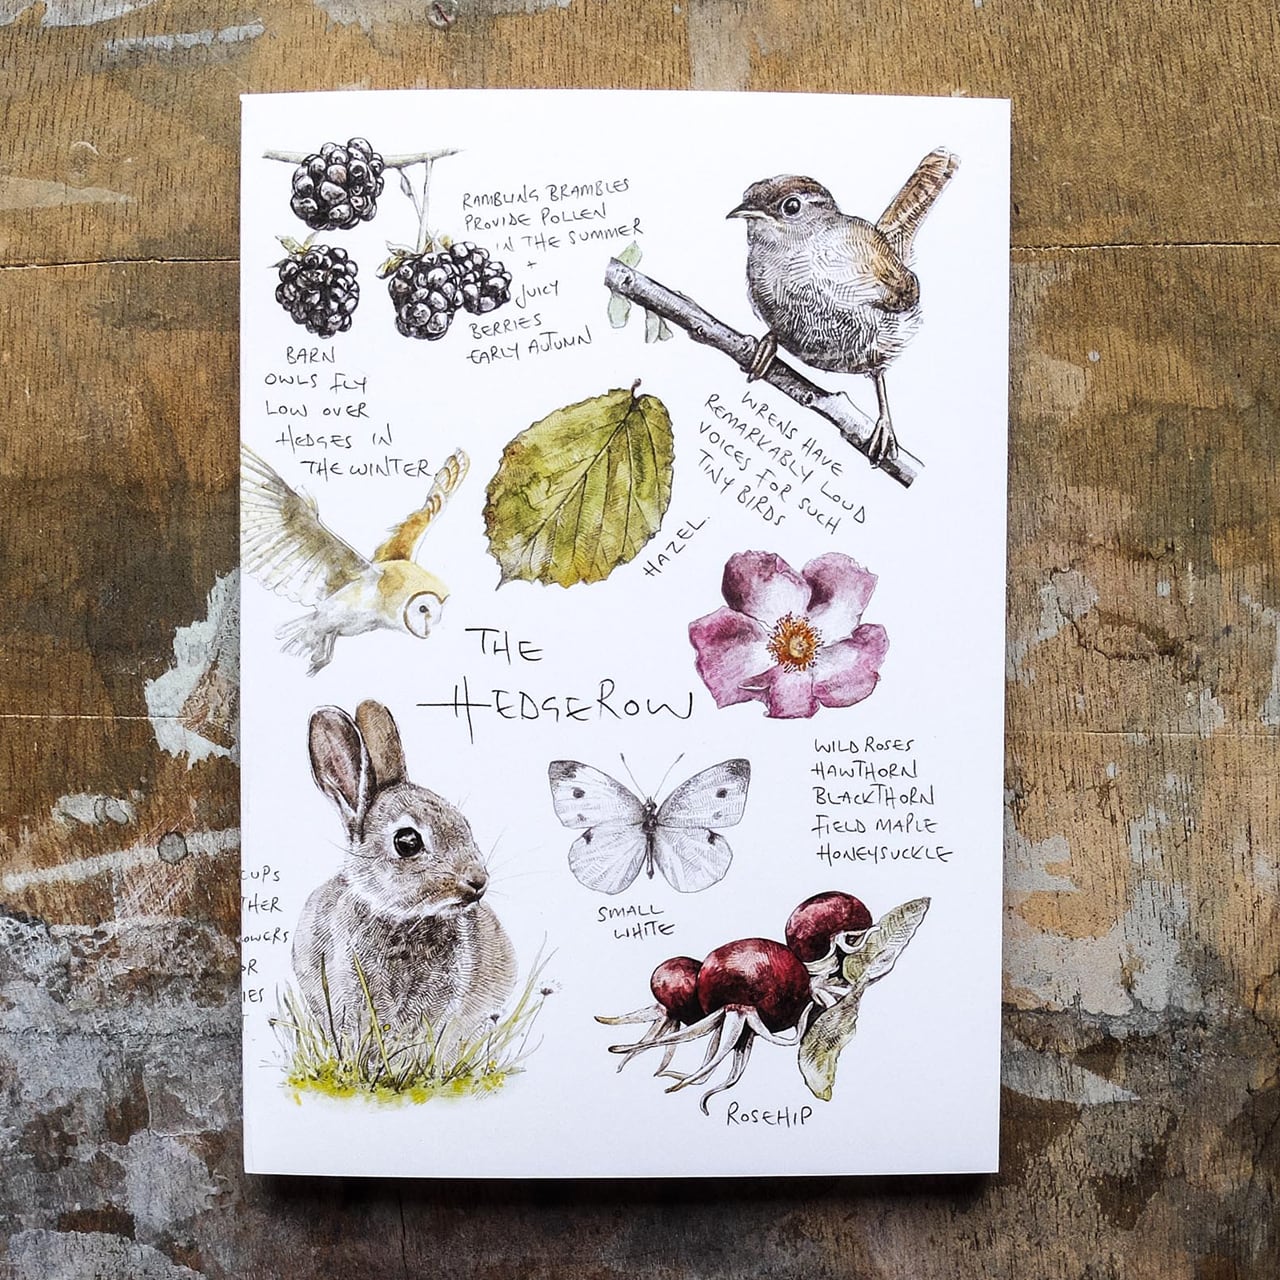 RAMBLING BRAMBLES
PROVIDE POLLEN
IN THE SUMMER
+
JUICY
BERRIES
EARLY AUTUMN
BARN
OWLS FLY
LOW OVER
HEDGES IN
THE WINTER
WRENS HAVE
REMARKABLY LOUD
VOICES FOR SUCH
TINY BIRDS
HAZEL.
THE
HEDGEROW
WILD ROSES
HAWTHORN
BLACKTHORN
FIELD MAPLE
HONEYSUCKLE
CUPS
THER
OWERS
OR
IES
SMALL
WHITE
ROSEHIP